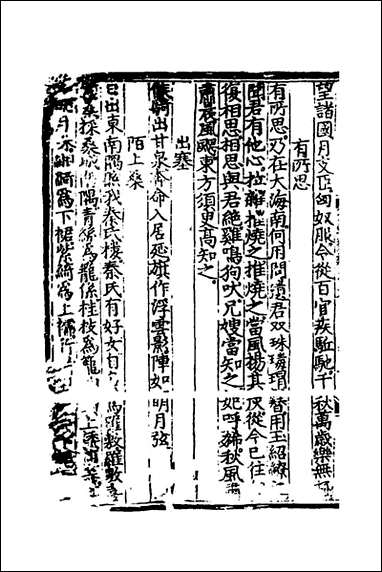 望諸國月支臣匈奴服令從百官疾驅馳千秋萬歲樂無
有所思
有所思乃在大海南何用問遺君双珠瑇瑁簪用玉紹繚
聞君有他心拉雜摧燒之摧燒之當風揚其灰從今已往
復相思相思與君絕雞鳴狗吠兄嫂當知之妃呼豨秋風
肅晨風颸東方須臾高知之
出塞
侯騎出甘泉奔命入居延旗作浮雲影陣如明月弦
陌上桑
日出東南隅照我秦氏樓秦氏有好女自 爲羅敷羅敷
採桑城 隅青絲爲籠係桂枝爲籠 上
明月 緗綺爲下裙紫綺爲上襦行